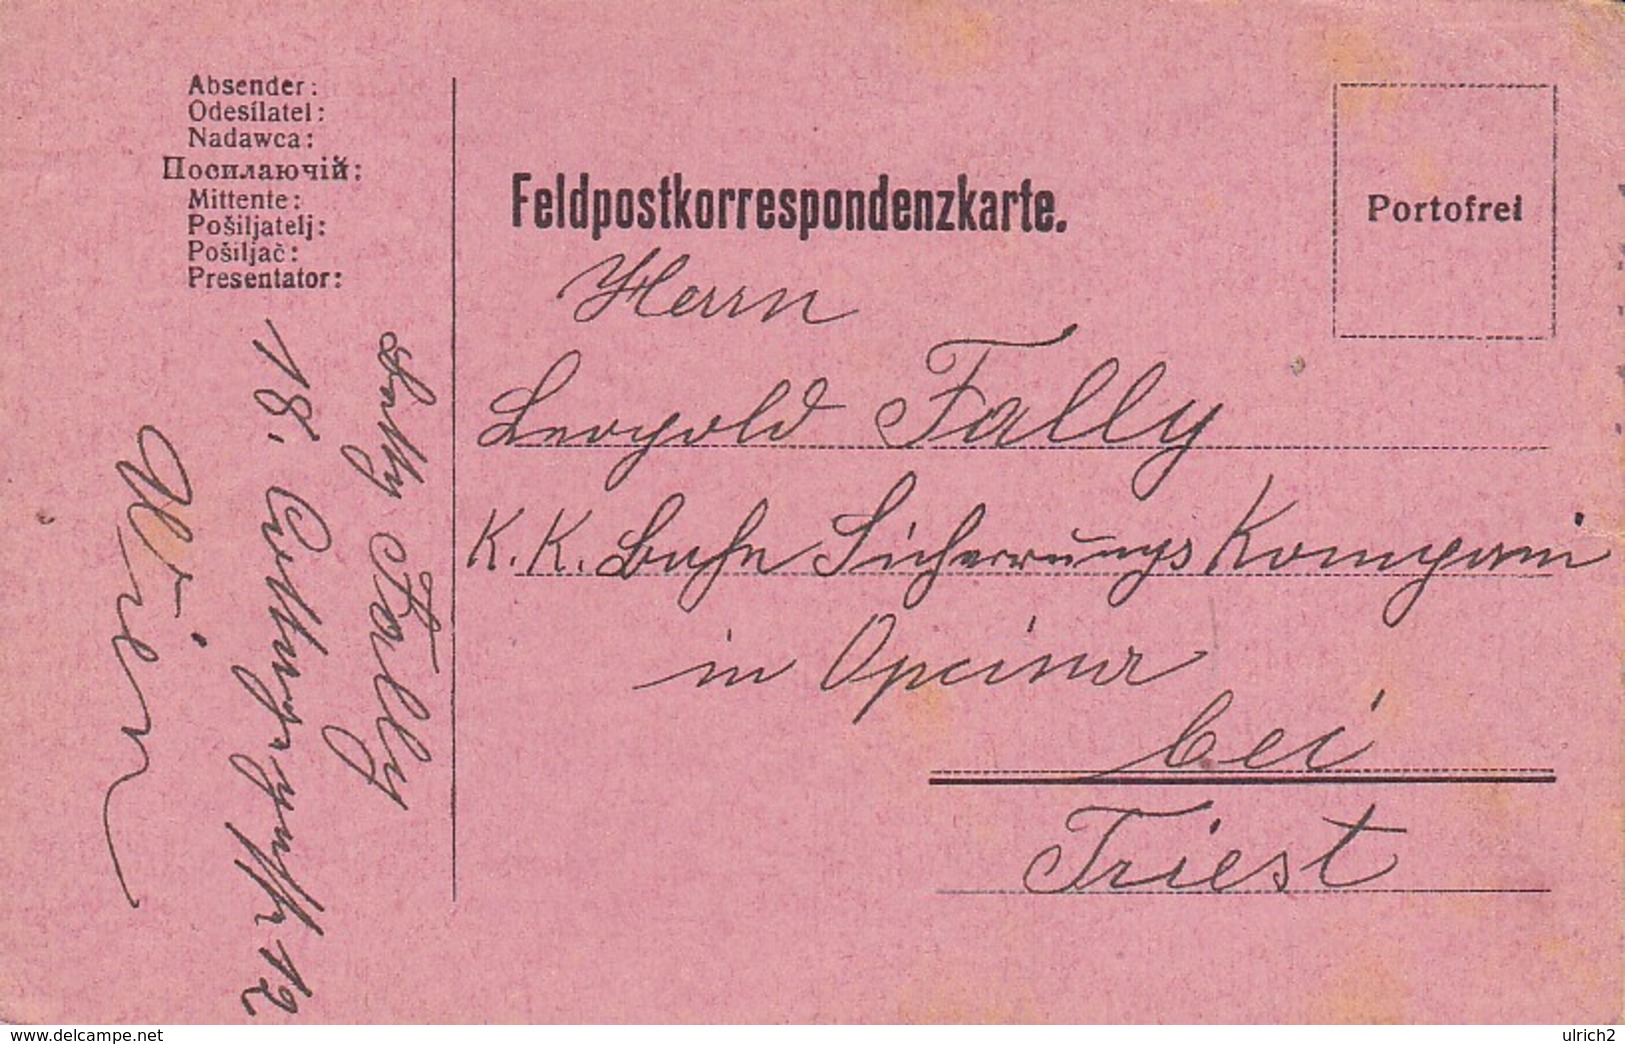 Absender:
Odesílatel:
Nadawca:
Посилаючій:
Mittente:
Pošiljatelj:
Pošiljač:
Presentator:
Feldpostkorrespondenzkarte.
Portofrei
Herrn
Leopold Fally
K. K. Bahn Sicherungs Kompani
in Opcina
bei
Triest
Fally
18. 12
Wien
www.delcampe.net
ulrich2